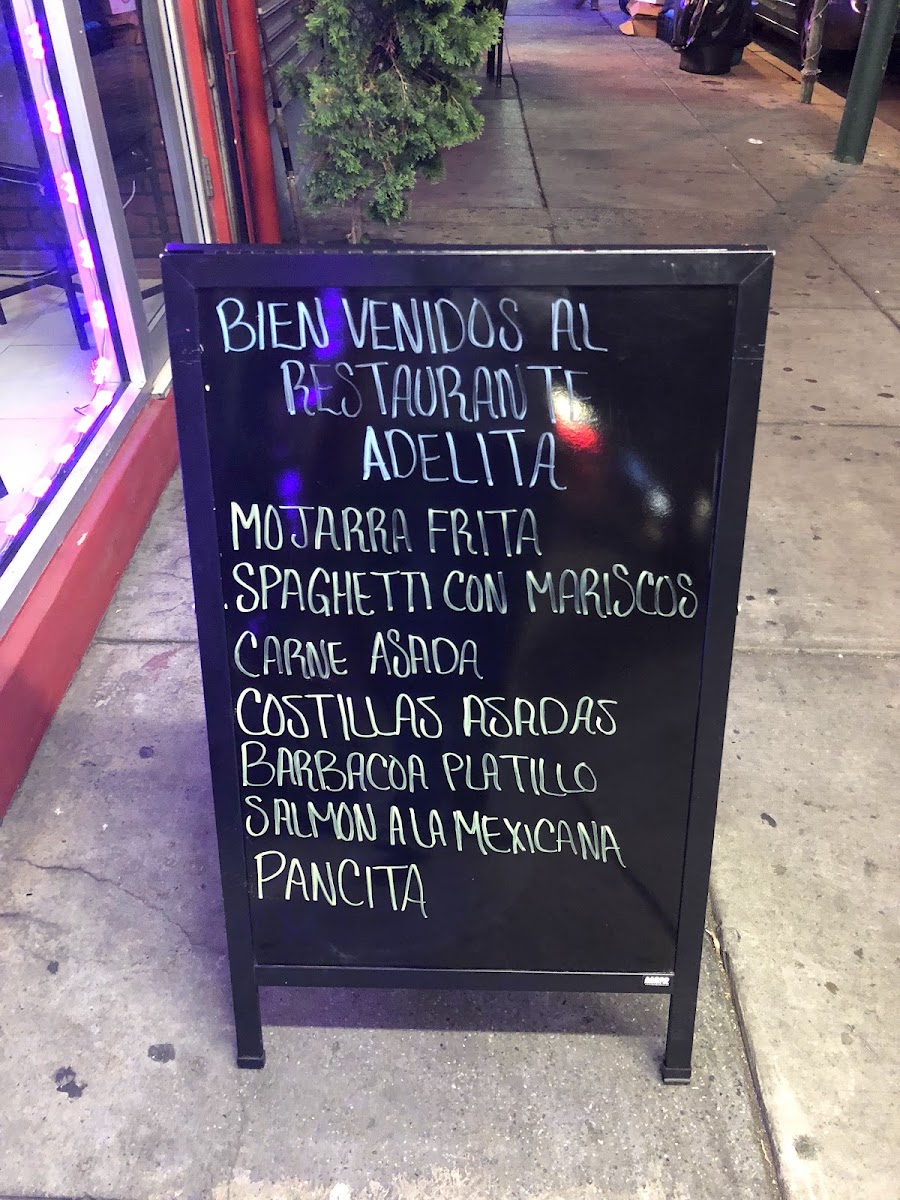 BIEN VENIDOS AL
RESTAURANTE
ADELITA
MOJARRA FRITA
SPAGHETTI CON MARISCOS
CARNE ASADA
COSTILLAS ASADAS
BARBACOA PLATILLO
SALMON A LA MEXICANA
PANCITA